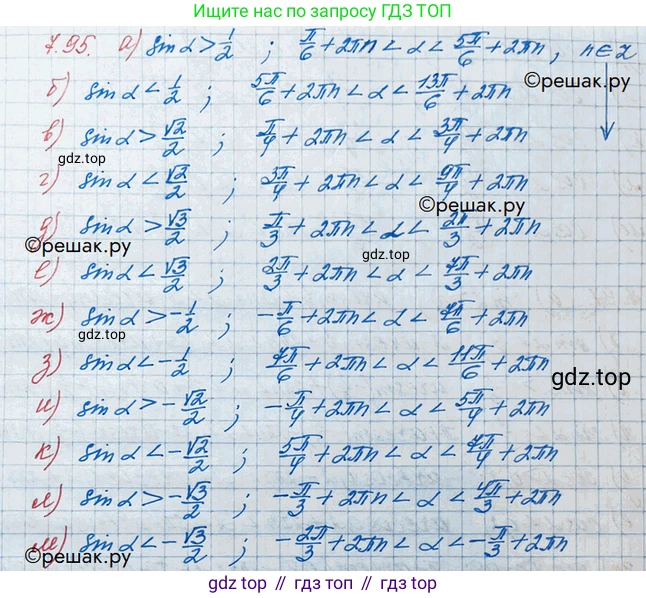 Найди все задания по
короткому запросу ГДЗ ТОП
7.95. а) sin α > 1/2 ; π/6 + 2πn < α < 5π/6 + 2πn, n ∈ Z
б) sin α < 1/2 ; 5π/6 + 2πn < α < 13π/6 + 2πn
©решак.ру
в) sin α > √2/2 ; π/4 + 2πn < α < 3π/4 + 2πn
gdz.top
г) sin α < √2/2 ; 3π/4 + 2πn < α < 9π/4 + 2πn
©решак.ру
д) sin α > √3/2 ; π/3 + 2πn < α < 2π/3 + 2πn
©решак.ру
gdz.top
е) sin α < √3/2 ; 2π/3 + 2πn < α < 7π/3 + 2πn
ж) sin α > -1/2 ; -π/6 + 2πn < α < 7π/6 + 2πn
gdz.top
з) sin α < -1/2 ; 7π/6 + 2πn < α < 11π/6 + 2πn
gdz.top
и) sin α > -√2/2 ; -π/4 + 2πn < α < 5π/4 + 2πn
к) sin α < -√2/2 ; 5π/4 + 2πn < α < 7π/4 + 2πn
л) sin α > -√3/2 ; -π/3 + 2πn < α < 4π/3 + 2πn
м) sin α < -√3/2 ; -2π/3 + 2πn < α < -π/3 + 2πn
©решак.ру
gdz top // гдз топ // gdz.top